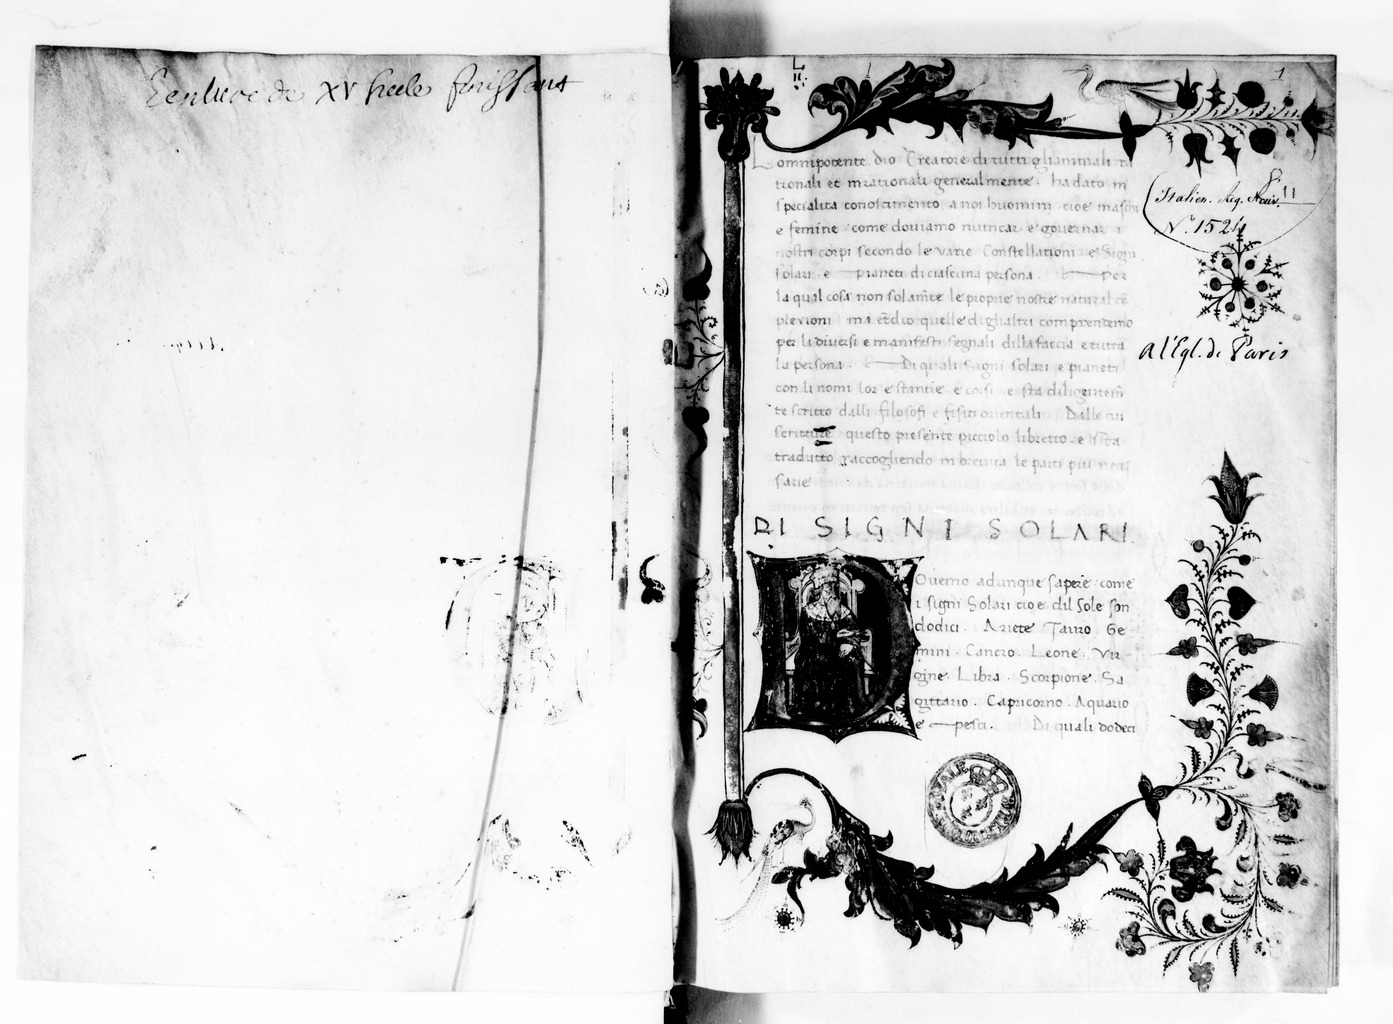 Ecriture de XV siecle finissant
1
Lomnipotente dio Creatore di tutti gli animali ra
tionali et inrationali generalmente ha dato in
specialita conoscimento a noi huomini cioe mascħ
e femine come douiamo nutricar e gouernar i
nostri corpi secondo le varie Constellationi e Signi
solari e pianeti di ciascuna persona. Per
la qual cosa non solam̄te le proprie nostre natural cō
plexioni ma et̄dio quelle di gli altri comprendemo
per li diuersi e manifesti segnali dilla faccia e tutta
la persona. Di quali Signi solari e pianeti
con li nomi lor e stantie e corsi e sta diligentem̄
te scritto dalli filosofi e fisici orientali Dalle cui
scritture questo presente picciolo libretto e
tradutto raccogliendo in breuita le parti piu neces
sarie
Italien. Reg. Acuis. 11
N.° 1524
a l'Egl. de Paris
DI SIGNI SOLARI.
DOuemo adunque sapere come
i signi Solari cioe dil Sole son
dodici. Ariete Tauro Ge
mini. Cancro. Leone. Vir
gine. Libra. Scorpione. Sa
gittario. Capricorno. Aquario
e pesci. Di quali dodeci